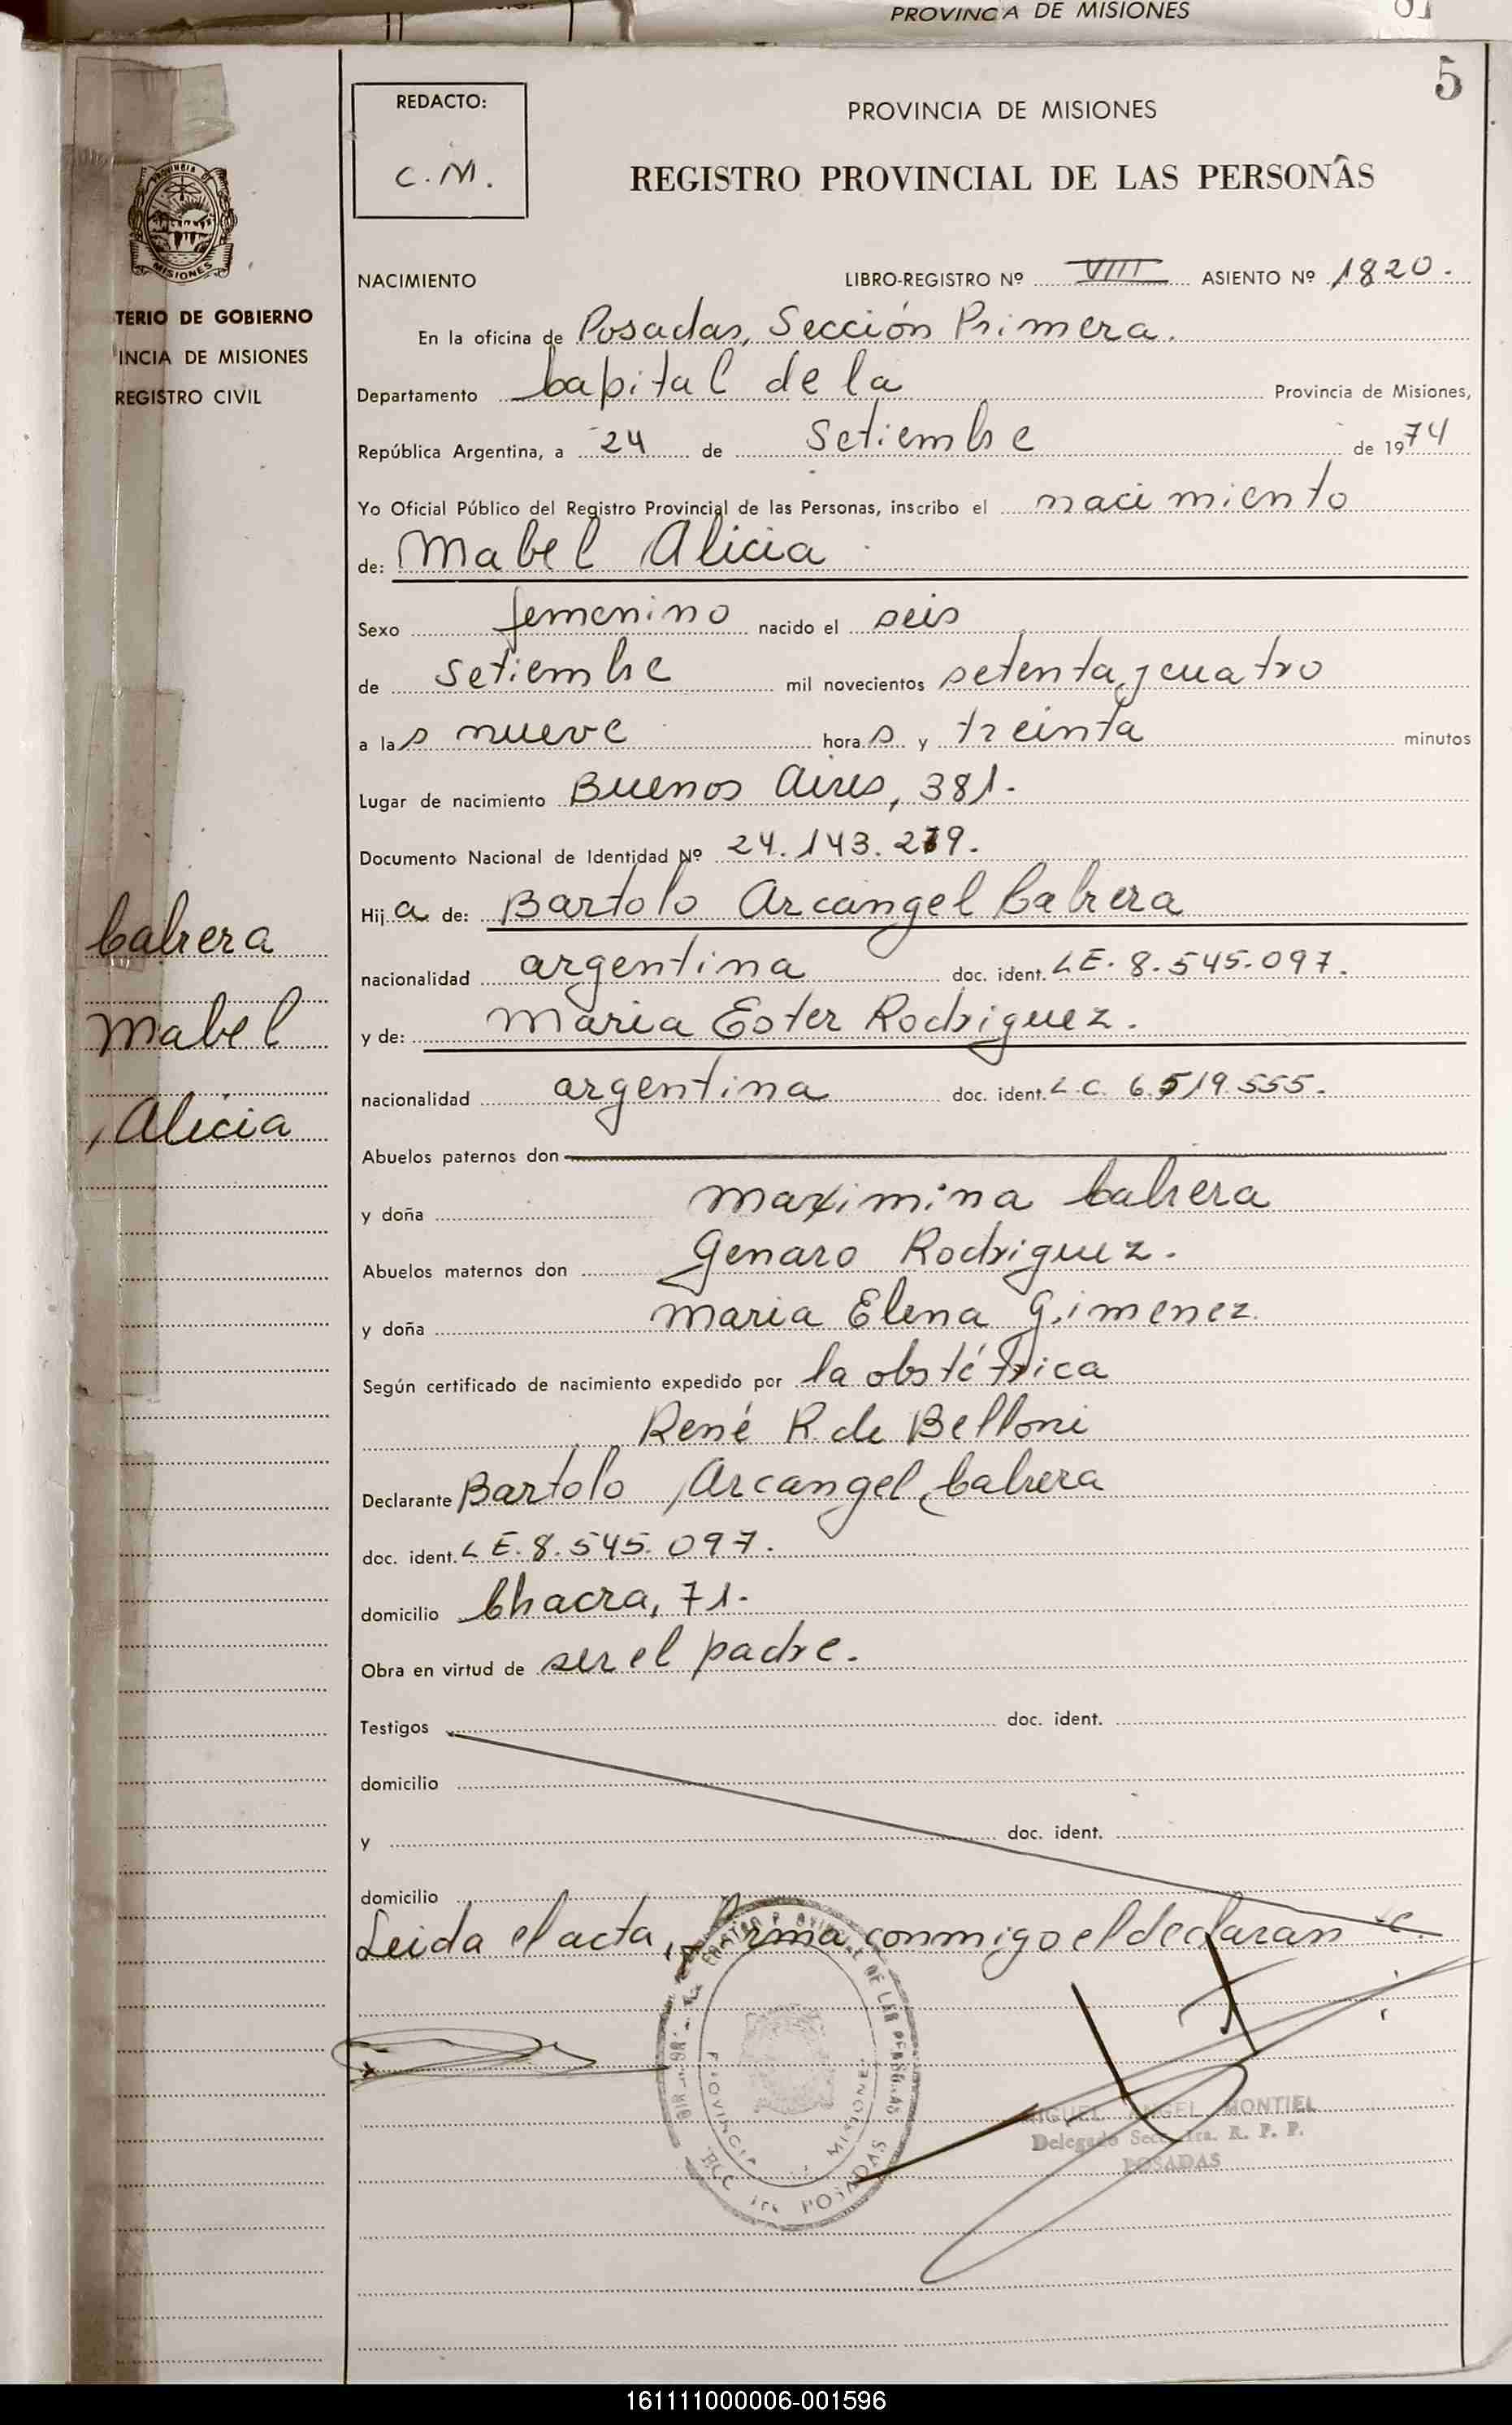 PROVINC A DE MISIONES
5
REDACTO:
C. M.
PROVINCIA DE MISIONES
REGISTRO PROVINCIAL DE LAS PERSONAS
PROVINCIA D
MISIONES
TERIO DE GOBIERNO
INCIA DE MISIONES
REGISTRO CIVIL
NACIMIENTO LIBRO-REGISTRO Nº VIII ASIENTO Nº 1820.
En la oficina de Posadas, Sección Primera.
Departamento Capital de la Provincia de Misiones,
República Argentina, a 24 de Setiembre de 1974
Yo Oficial Público del Registro Provincial de las Personas, inscribo el nacimiento
de: Mabel Alicia
Sexo femenino nacido el seis
de Setiembre mil novecientos setenta y cuatro
a las nueve horas y treinta minutos
Lugar de nacimiento Buenos Aires, 381.
Documento Nacional de Identidad Nº 24.143.219.
Hija de: Bartolo Arcangel Cabrera
nacionalidad argentina doc. ident. LE. 8.545.097.
y de: Maria Ester Rodriguez.
nacionalidad argentina doc. ident. L.C. 6.519.555.
Cabrera
Mabel
Alicia
Abuelos paternos don
y doña Maximina Cabrera
Abuelos maternos don Genaro Rodriguez.
y doña Maria Elena Gimenez.
Según certificado de nacimiento expedido por la obstétrica
René R. de Belloni
Declarante Bartolo Arcangel Cabrera
doc. ident. L E. 8.545.097.
domicilio Chacra, 71.
Obra en virtud de ser el padre.
Testigos doc. ident.
domicilio
y doc. ident.
domicilio
Leida el acta, firma conmigo el declarante.
MIGUEL ANGEL MONTIEL
Delegado Secc. 1ra. R. P. P.
POSADAS
PROVINCIA MISIONES
POSADAS
161111000006-001596